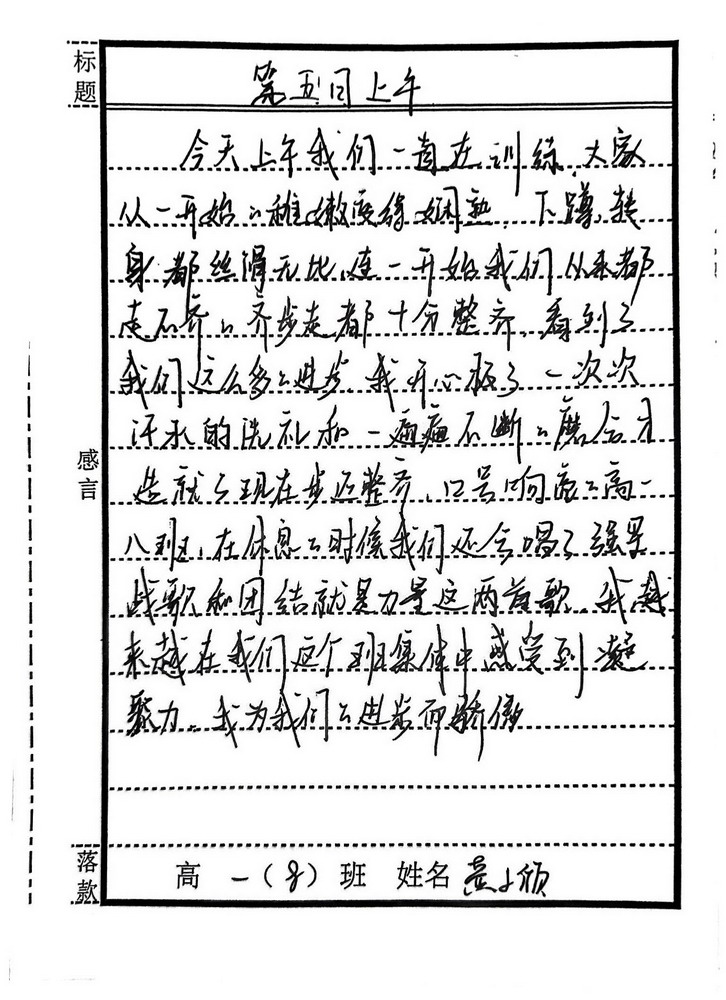 标题
第五日上午
今天上午我们一直在训练,大家
从一开始的稚嫩变得娴熟,下蹲、转
身都丝滑无比,连一开始我们从来都
走不齐的齐步走都十分整齐,看到了
我们这么多的进步,我开心极了,一次次
汗水的洗礼和一遍遍不断的磨合才
造就了现在步迈整齐、口号响亮的高一
八班,在休息的时候我们还会唱了强军
战歌和团结就是力量这两首歌,我越
来越在我们这个班集体中感受到凝
聚力,我为我们的进步而骄傲
感言
落款
高一(8)班 姓名